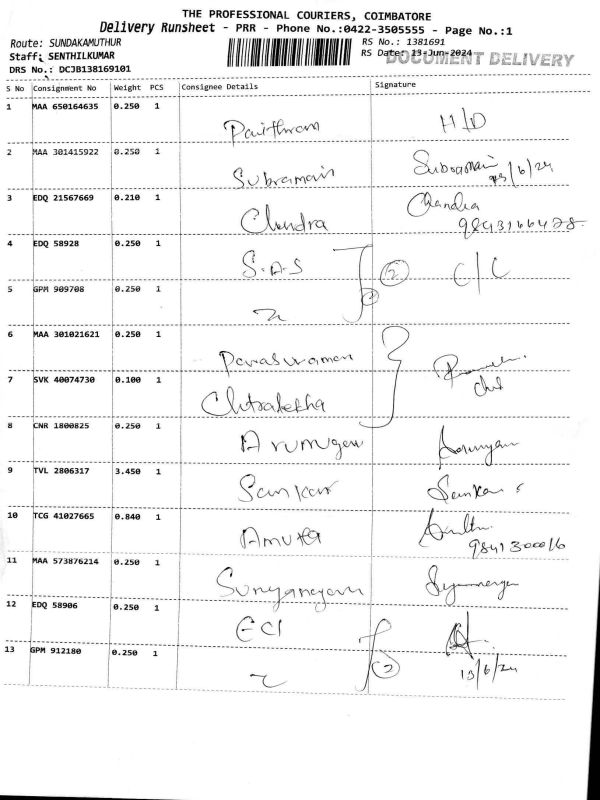 THE PROFESSIONAL COURIERS, COIMBATORE
Delivery Runsheet - PRR - Phone No.:0422-3505555 - Page No.:1
Route: SUNDAKAMUTHUR RS No.: 1381691
Staff: SENTHILKUMAR RS Date: 13-Jun-2024 DOCUMENT DELIVERY
DRS No.: DCJB138169101
S No Consignment No Weight PCS Consignee Details Signature
1 MAA 650164635 0.250 1 Pavithram H/D
2 MAA 301415922 0.250 1 Subramani Subramani 13/6/24
3 EDQ 21567669 0.210 1 Chandra Chandra
9843166428
4 EDQ 58928 0.250 1 S.A.S (2) C/C
5 GPM 909708 0.250 1
6 MAA 301021621 0.250 1 Parasuraman
7 SVK 40074730 0.100 1 Chitralekha
8 CNR 1800825 0.250 1 Arumugam
9 TVL 2806317 3.450 1 Sankar Sankar
10 TCG 41027665 0.840 1 Amutha
9841300016
11 MAA 573876214 0.250 1
12 EDQ 58906 0.250 1 ECI
13 GPM 912180 0.250 1 (2) 13/6/24